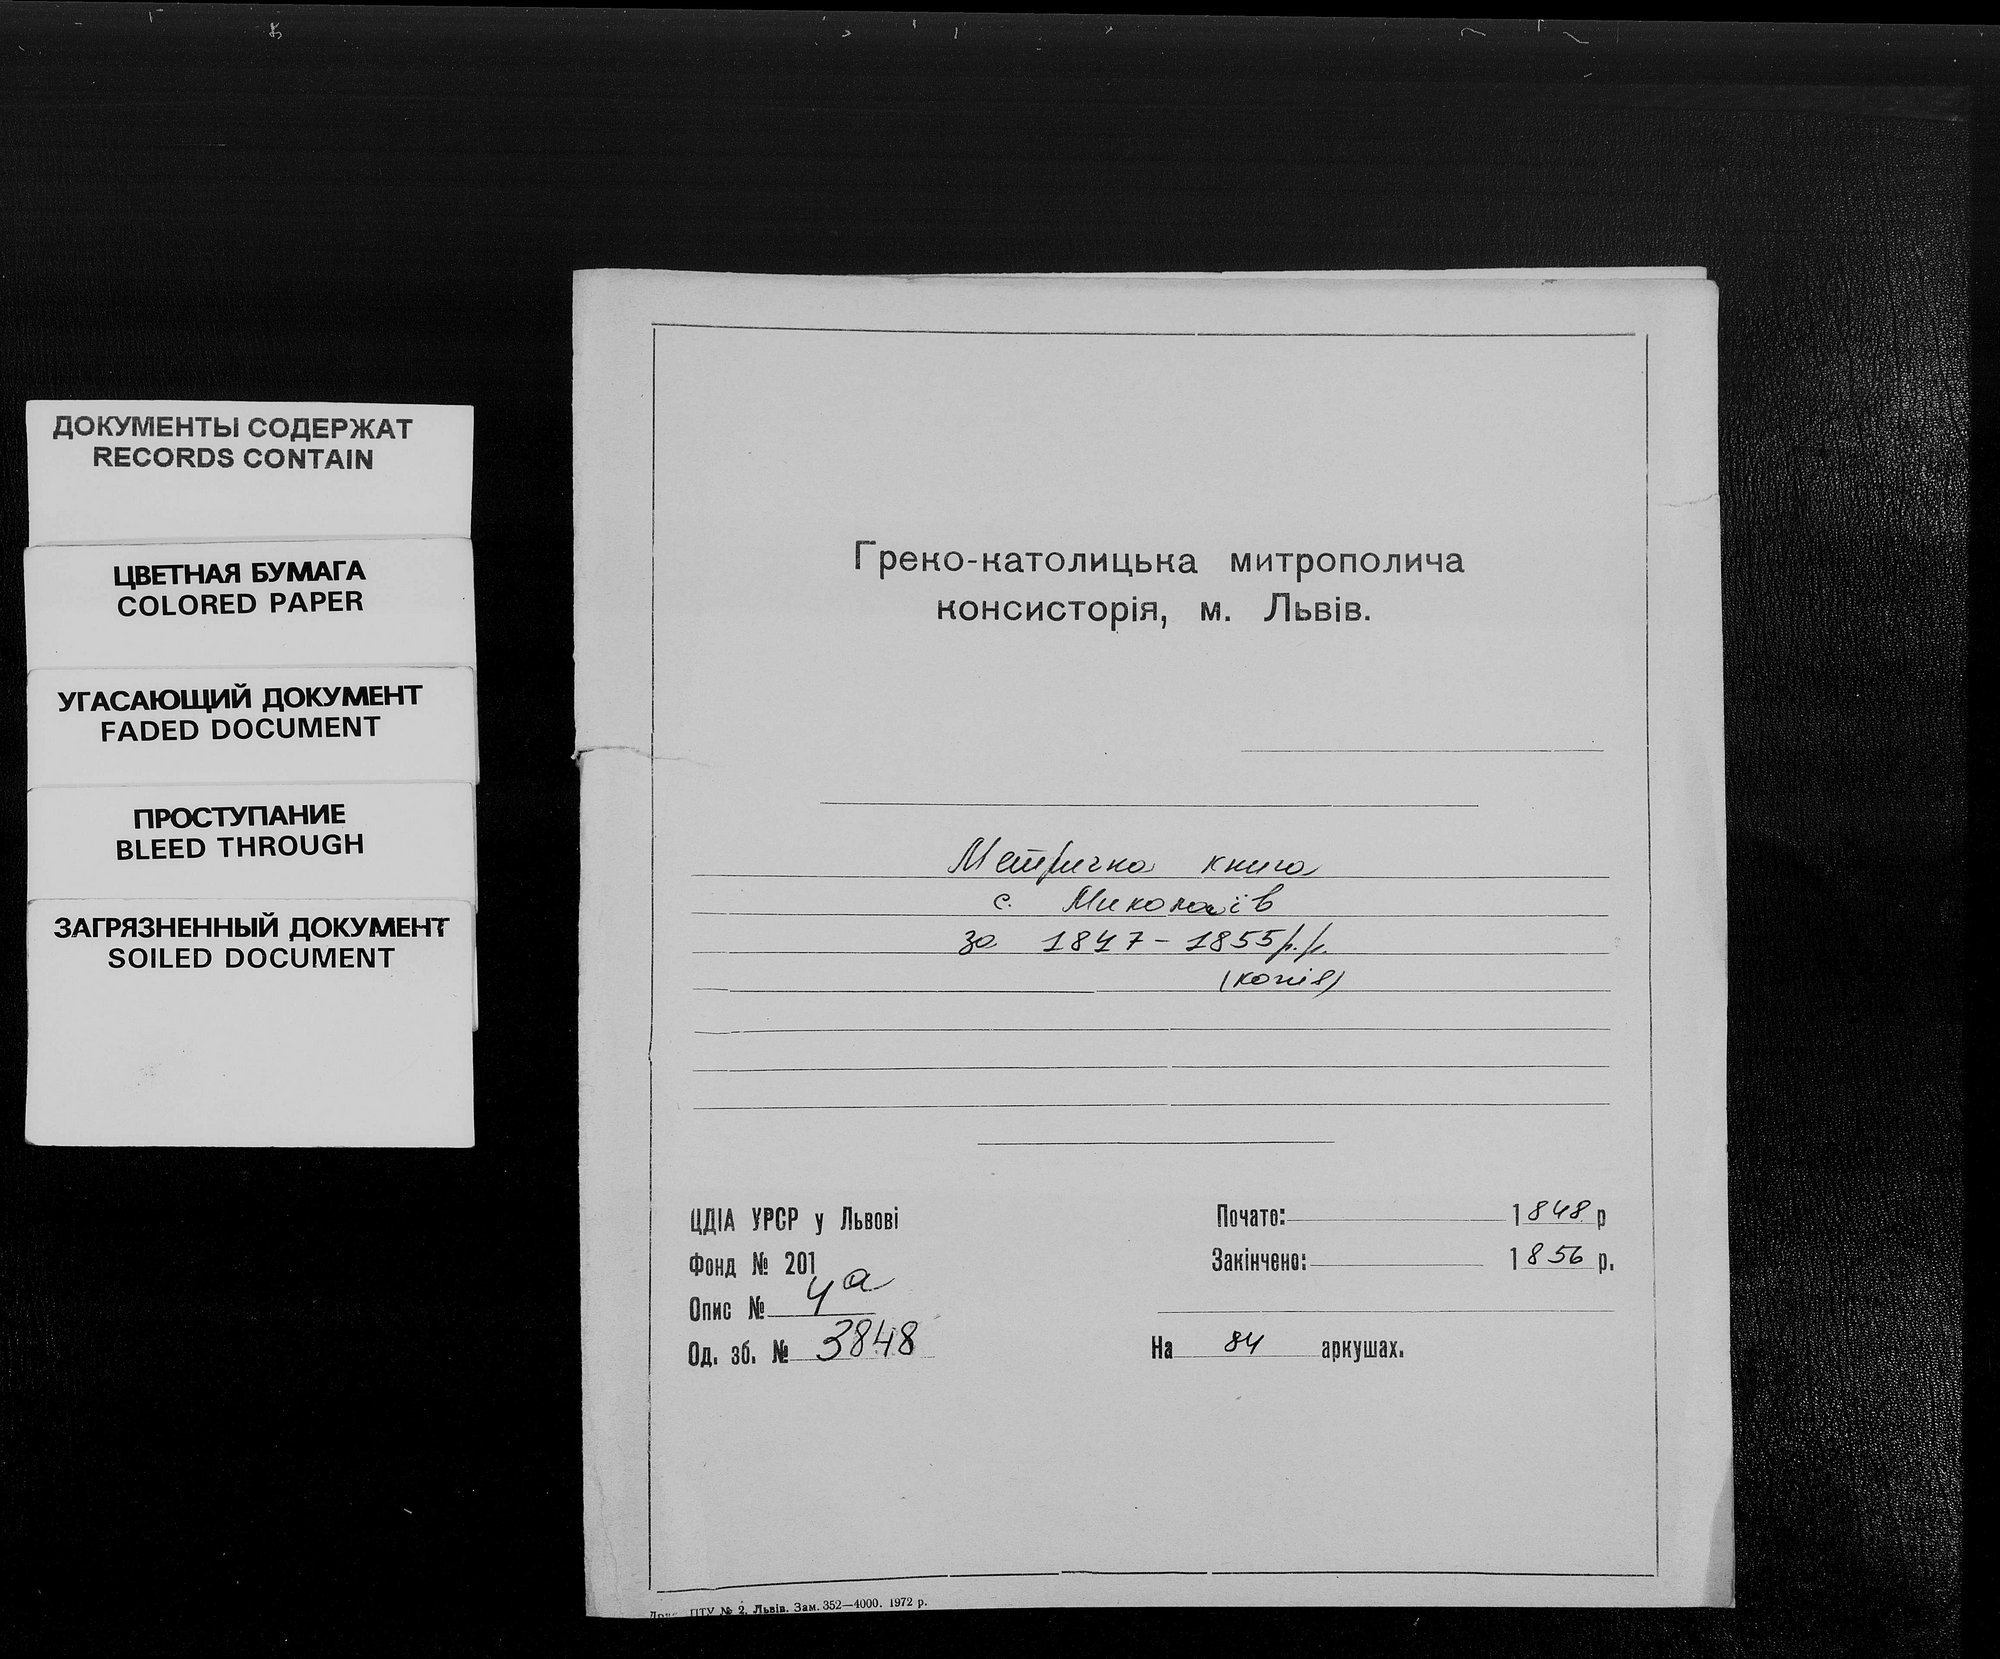 ДОКУМЕНТЫ СОДЕРЖАТ
RECORDS CONTAIN
ЦВЕТНАЯ БУМАГА
COLORED PAPER
УГАСАЮЩИЙ ДОКУМЕНТ
FADED DOCUMENT
ПРОСТУПАНИЕ
BLEED THROUGH
ЗАГРЯЗНЕННЫЙ ДОКУМЕНТ
SOILED DOCUMENT
Греко-католицька митрополича
консисторія, м. Львів.
Метрична книга
с. Миколаїв
за 1847-1855 р.р.
(копія)
ЦДІА УРСР у Львові
Фонд № 201
Опис № 4а
Од. зб. № 3848
Почато: 1848 р
Закінчено: 1856 р.
На 84 аркушах.
ПТУ № 2. Львів. Зам. 352—4000. 1972 р.